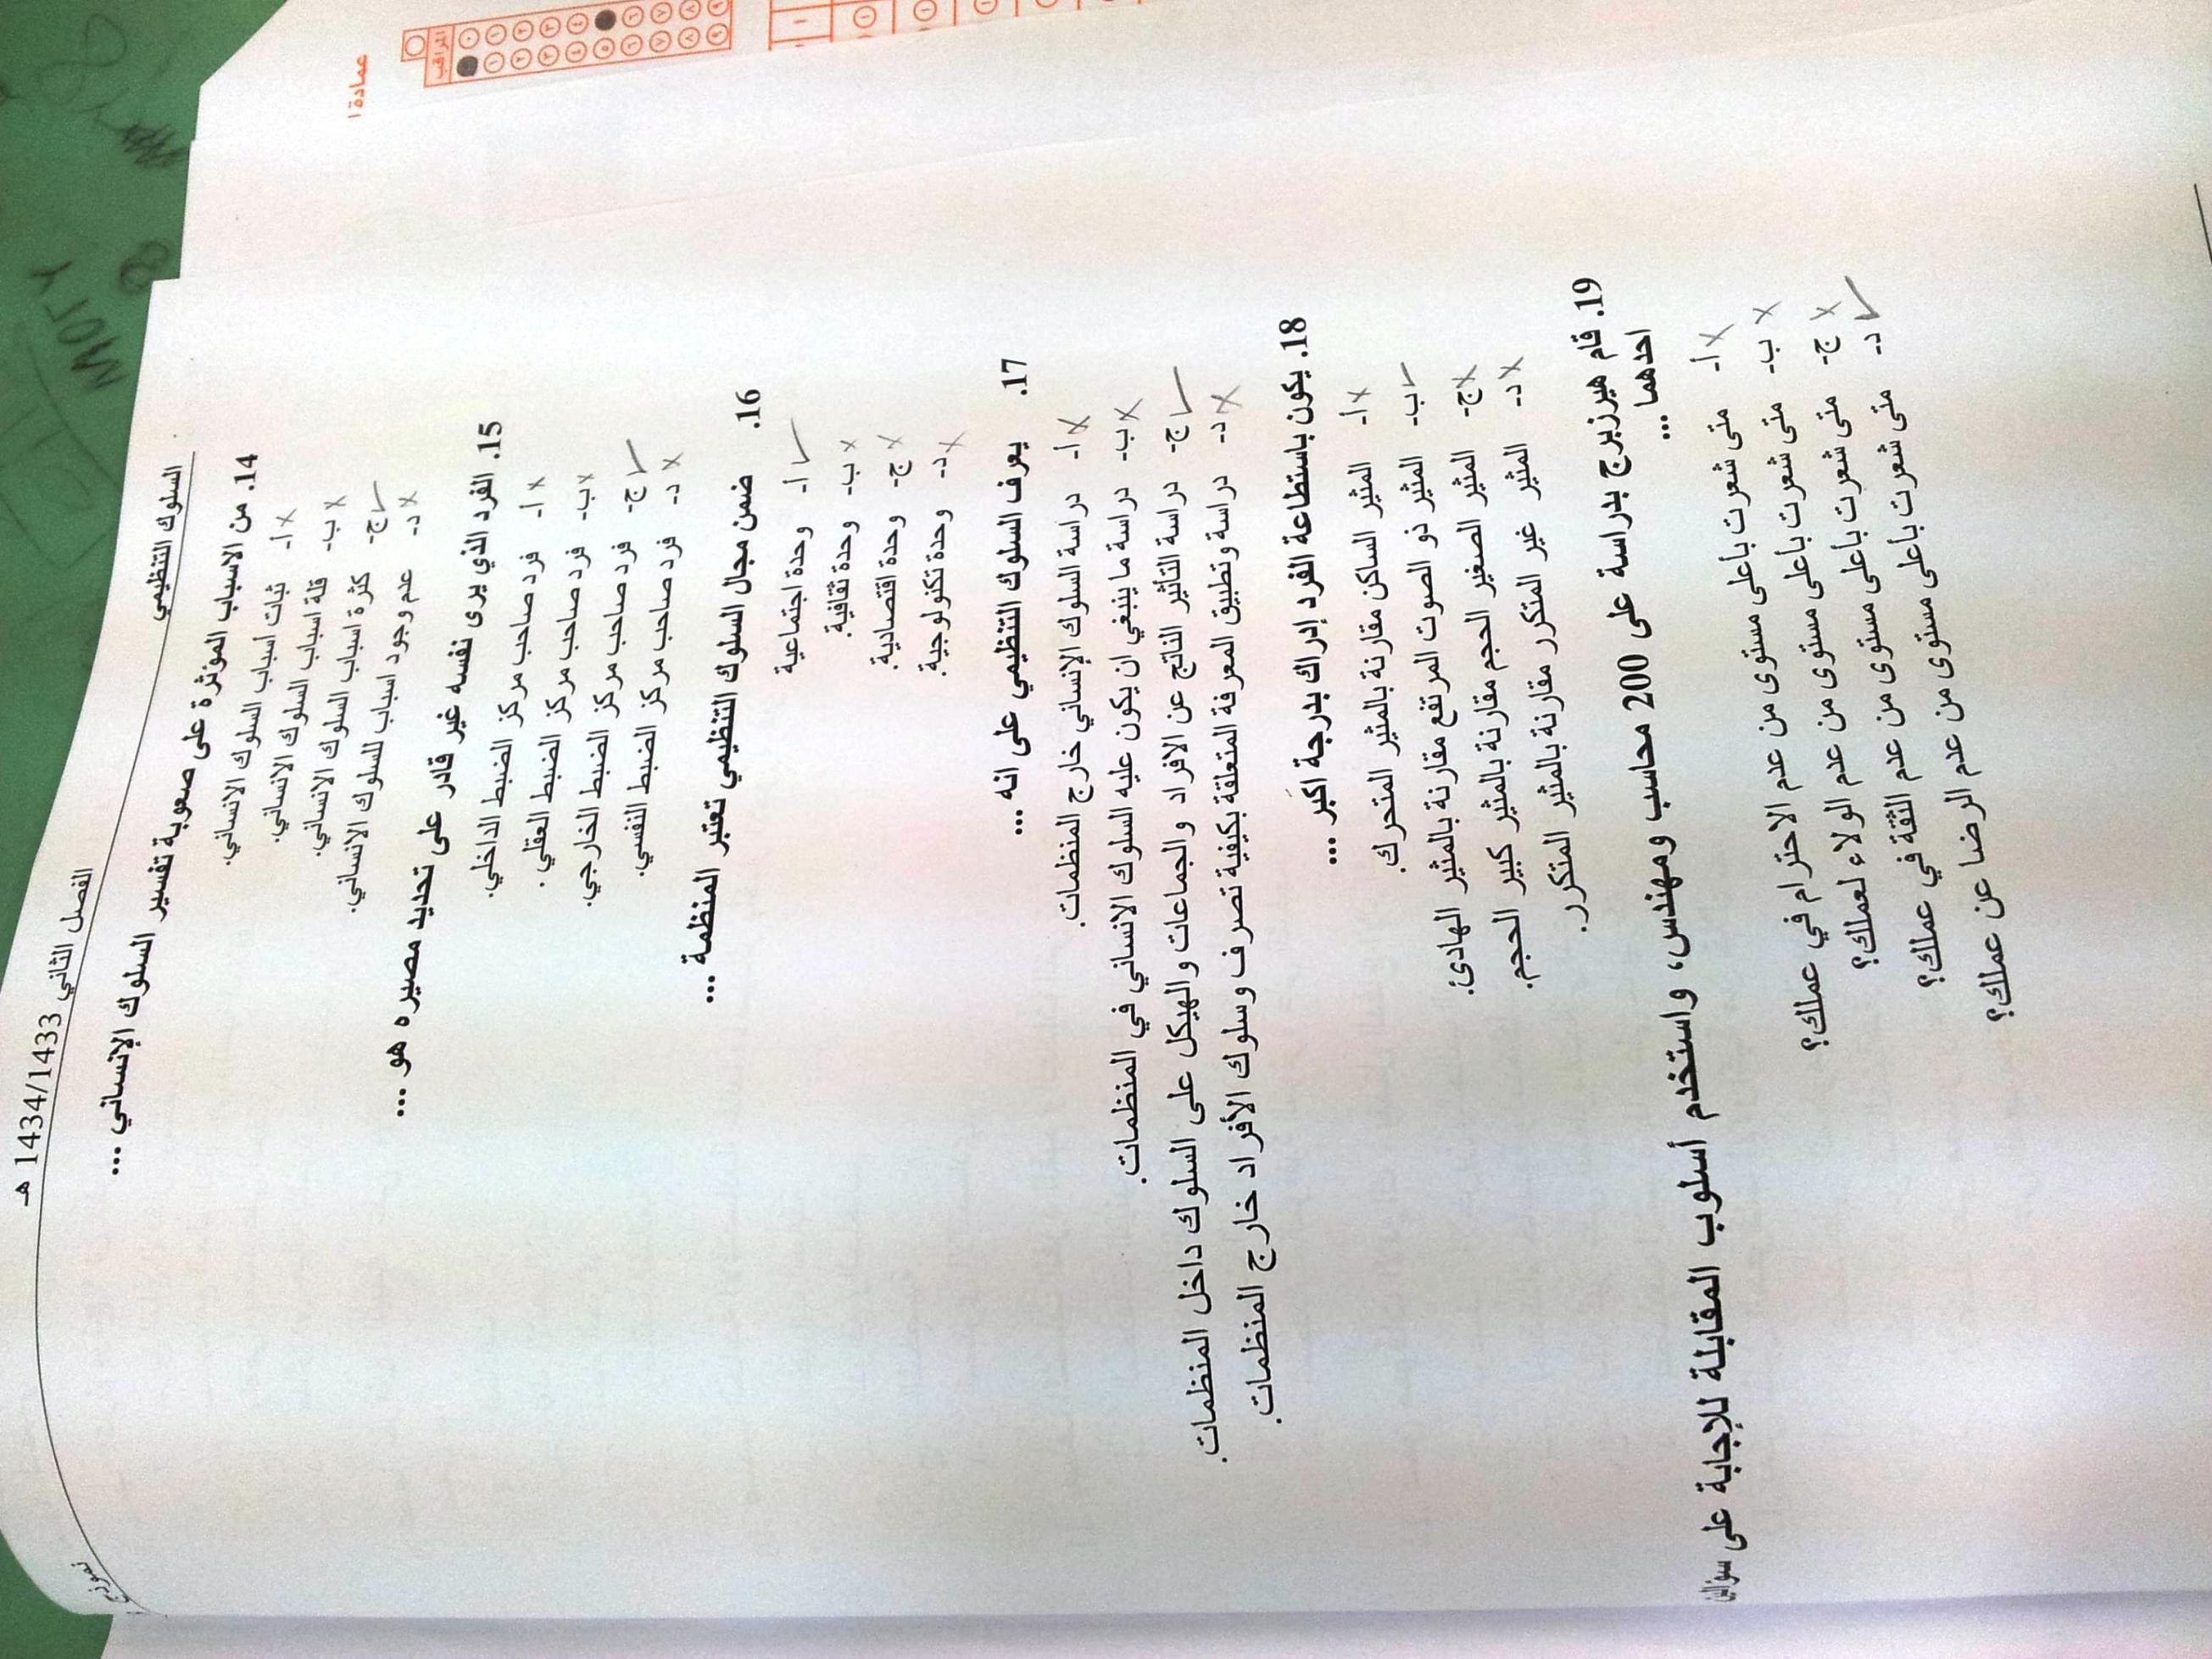 السلوك التنظيمي
الفصل الثاني 1434/1433 هـ
نموذج
14. من الاسباب المؤثرة على صعوبة تفسير السلوك الإنساني ...
أ- ثبات اسباب السلوك الانساني.
ب- قلة اسباب السلوك الانساني.
ج- كثرة اسباب السلوك الانساني.
د- عدم وجود اسباب للسلوك الانساني.
15. الفرد الذي يرى نفسه غير قادر على تحديد مصيره هو ...
أ- فرد صاحب مركز الضبط الداخلي.
ب- فرد صاحب مركز الضبط العقلي.
ج- فرد صاحب مركز الضبط الخارجي.
د- فرد صاحب مركز الضبط النفسي.
16. ضمن مجال السلوك التنظيمي تعتبر المنظمة ...
أ- وحدة اجتماعية
ب- وحدة ثقافية.
ج- وحدة اقتصادية.
د- وحدة تكنولوجية.
17. يعرف السلوك التنظيمي على انه ...
أ- دراسة السلوك الإنساني خارج المنظمات.
ب- دراسة ما ينبغي ان يكون عليه السلوك الانساني في المنظمات.
ج- دراسة التأثير الناتج عن الافراد والجماعات والهيكل على السلوك داخل المنظمات.
د- دراسة وتطبيق المعرفة المتعلقة بكيفية تصرف وسلوك الأفراد خارج المنظمات.
18. يكون باستطاعة الفرد إدراك بدرجة اكبر ...
أ- المثير الساكن مقارنة بالمثير المتحرك.
ب- المثير ذو الصوت المرتفع مقارنة بالمثير الهادئ.
ج- المثير الصغير الحجم مقارنة بالمثير كبير الحجم.
د- المثير غير المتكرر مقارنة بالمثير المتكرر.
19. قام هيرزبرج بدراسة على 200 محاسب ومهندس، واستخدم أسلوب المقابلة للإجابة على سؤالين
احدهما ...
أ- متى شعرت بأعلى مستوى من عدم الاحترام في عملك؟
ب- متى شعرت بأعلى مستوى من عدم الولاء لعملك؟
ج- متى شعرت بأعلى مستوى من عدم الثقة في عملك؟
د- متى شعرت بأعلى مستوى من عدم الرضا عن عملك؟
عمادة ا
المراقب